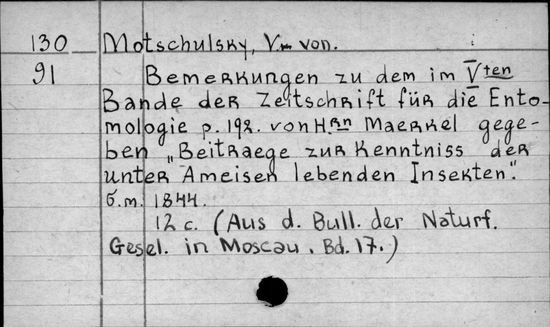 130 Motschulsky, V. von.
91 Bemerkungen zu dem im Vten
Bande der Zeitschrift für die Ento-
mologie p. 192. von Hrn Maerkel gege-
ben „Beitraege zur Kenntniss der
unter Ameisen lebenden Insekten".
б.m. 1844.
12 c. (Aus d. Bull. der Naturf.
Gesel. in Moscau. Bd. 17.)